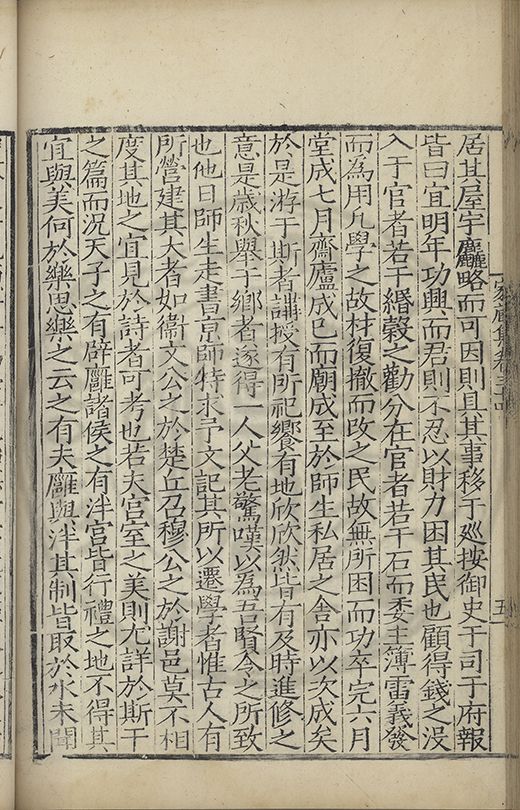 家藏集卷三十四
五
居其屋宇麤略而可因則具其事移于廵按御史于司于府報
皆曰宜明年功興而君則不忍以財力困其民也顧得錢之没
入于官者若干緡穀之勸分在官者若干石而委主簿雷義發
而為用凡學之故材復撤而改之民故無所困而功卒完六月
堂成七月齋廬成巳而廟成至於師生私居之舎亦以次成矣
於是游于斯者講授有所祀饗有地欣欣然皆有及時進修之
意是歲秋舉于鄉者遂得一人父老驚嘆以為吾賢令之所致
也他日師生走書京師特求予文記其所以遷學者惟古人有
所營建其大者如衞文公之於楚丘召穆公之於謝邑莫不相
度其地之宜見於詩者可考也若夫宮室之美則尤詳於斯干
之篇而況天子之有辟廱諸侯之有泮宮皆行禮之地不得其
宜與美何於樂思樂之云之有夫廱與泮其制皆取於水未聞